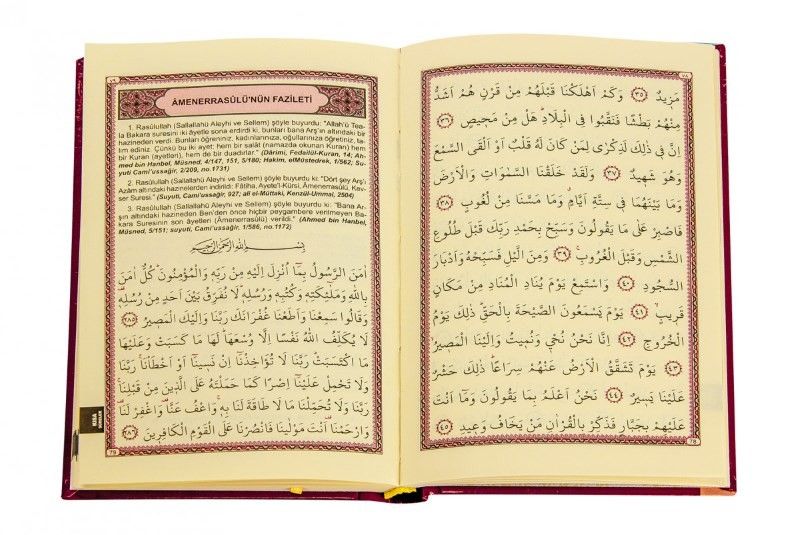 ٧٨
مَزِيدٌ ﴿٣٥﴾ وَكَمْ اَهْلَكْنَا قَبْلَهُمْ مِنْ قَرْنٍ هُمْ اَشَدُّ
مِنْهُمْ بَطْشًا فَنَقَّبُوا فِي الْبِلَادِ هَلْ مِنْ مَحِيصٍ ﴿٣٦﴾
اِنَّ فِي ذٰلِكَ لَذِكْرٰى لِمَنْ كَانَ لَهُ قَلْبٌ اَوْ اَلْقَى السَّمْعَ
وَهُوَ شَهِيدٌ ﴿٣٧﴾ وَلَقَدْ خَلَقْنَا السَّمٰوَاتِ وَالْاَرْضَ
وَمَا بَيْنَهُمَا فِي سِتَّةِ اَيَّامٍ وَمَا مَسَّنَا مِنْ لُغُوبٍ ﴿٣٨﴾
فَاصْبِرْ عَلٰى مَا يَقُولُونَ وَسَبِّحْ بِحَمْدِ رَبِّكَ قَبْلَ طُلُوعِ
الشَّمْسِ وَقَبْلَ الْغُرُوبِ ﴿٣٩﴾ وَمِنَ الَّيْلِ فَسَبِّحْهُ وَاَدْبَارَ
السُّجُودِ ﴿٤٠﴾ وَاسْتَمِعْ يَوْمَ يُنَادِ الْمُنَادِ مِنْ مَكَانٍ
قَرِيبٍ ﴿٤١﴾ يَوْمَ يَسْمَعُونَ الصَّيْحَةَ بِالْحَقِّ ذٰلِكَ يَوْمُ
الْخُرُوجِ ﴿٤٢﴾ اِنَّا نَحْنُ نُحْيِ وَنُمِيتُ وَاِلَيْنَا الْمَصِيرُ
﴿٤٣﴾ يَوْمَ تَشَقَّقُ الْاَرْضُ عَنْهُمْ سِرَاعًا ذٰلِكَ حَشْرٌ
عَلَيْنَا يَسِيرٌ ﴿٤٤﴾ نَحْنُ اَعْلَمُ بِمَا يَقُولُونَ وَمَا اَنْتَ
عَلَيْهِمْ بِجَبَّارٍ فَذَكِّرْ بِالْقُرْاٰنِ مَنْ يَخَافُ وَعِيدِ ﴿٤٥﴾
78
٧٩
ÂMENERRASÛLÜ'NÜN FAZİLETİ
1. Rasûlullah (Sallallahü Aleyhi ve Sellem) şöyle buyurdu: "Allah'ü Tea-
la Bakara suresini iki âyetle sona erdirdi ki, bunları bana Arş'ın altındaki bir
hazineden verdi. Bunları öğreniniz, kadınlarınıza, oğullarınıza öğretiniz, ta-
lim ediniz. Çünkü bu iki ayet; hem bir salât (namazda okunan Kuran) hem
bir Kuran (ayetleri), hem de bir duadırlar." (Dârimi, Fedailül-Kuran, 14; Ah-
med bin Hanbel, Müsned, 4/147, 151, 5/180; Hakim, elMüstedrek, 1/562; Su-
yuti Cami'ussağir, 2/209, no.1731)
2. Rasûlullah (Sallallahü Aleyhi ve Sellem) şöyle buyurdu ki: "Dört şey Arş'ı
Azâm altındaki hazinelerden indirildi: Fâtiha, Ayete'l-Kürsi, Âmenerrasûlü, Kev-
ser Suresi." (Suyuti, Cami'ussağir, 927; ali el-Müttaki, Kenzül-Ummal, 2504)
3. Rasûlullah (Sallallahü Aleyhi ve Sellem) şöyle buyurdu ki: "Bana Ar-
şın altındaki hazineden Ben'den önce hiçbir peygambere verilmeyen Ba-
kara Suresinin son âyetleri (Âmenerrasûlü) verildi." (Ahmed bin Hanbel,
Müsned, 5/151; suyuti, Cami'ussağir, 1/586, no.1172)
بِسْمِ اللهِ الرَّحْمٰنِ الرَّحِيمِ
اٰمَنَ الرَّسُولُ بِمَا اُنْزِلَ اِلَيْهِ مِنْ رَبِّهِ وَالْمُؤْمِنُونَ كُلٌّ اٰمَنَ
بِاللهِ وَمَلٰئِكَتِهِ وَكُتُبِهِ وَرُسُلِهِ لَا نُفَرِّقُ بَيْنَ اَحَدٍ مِنْ رُسُلِهِ
وَقَالُوا سَمِعْنَا وَاَطَعْنَا غُفْرَانَكَ رَبَّنَا وَاِلَيْكَ الْمَصِيرُ ﴿٢٨٥﴾
لَا يُكَلِّفُ اللهُ نَفْسًا اِلَّا وُسْعَهَا لَهَا مَا كَسَبَتْ وَعَلَيْهَا
مَا اكْتَسَبَتْ رَبَّنَا لَا تُؤَاخِذْنَا اِنْ نَسِينَا اَوْ اَخْطَأْنَا رَبَّنَا
وَلَا تَحْمِلْ عَلَيْنَا اِصْرًا كَمَا حَمَلْتَهُ عَلَى الَّذِينَ مِنْ قَبْلِنَا
رَبَّنَا وَلَا تُحَمِّلْنَا مَا لَا طَاقَةَ لَنَا بِهِ وَاعْفُ عَنَّا وَاغْفِرْ لَنَا
وَارْحَمْنَا اَنْتَ مَوْلٰينَا فَانْصُرْنَا عَلَى الْقَوْمِ الْكَافِرِينَ ﴿٢٨٦﴾
79
KISA
SURELER